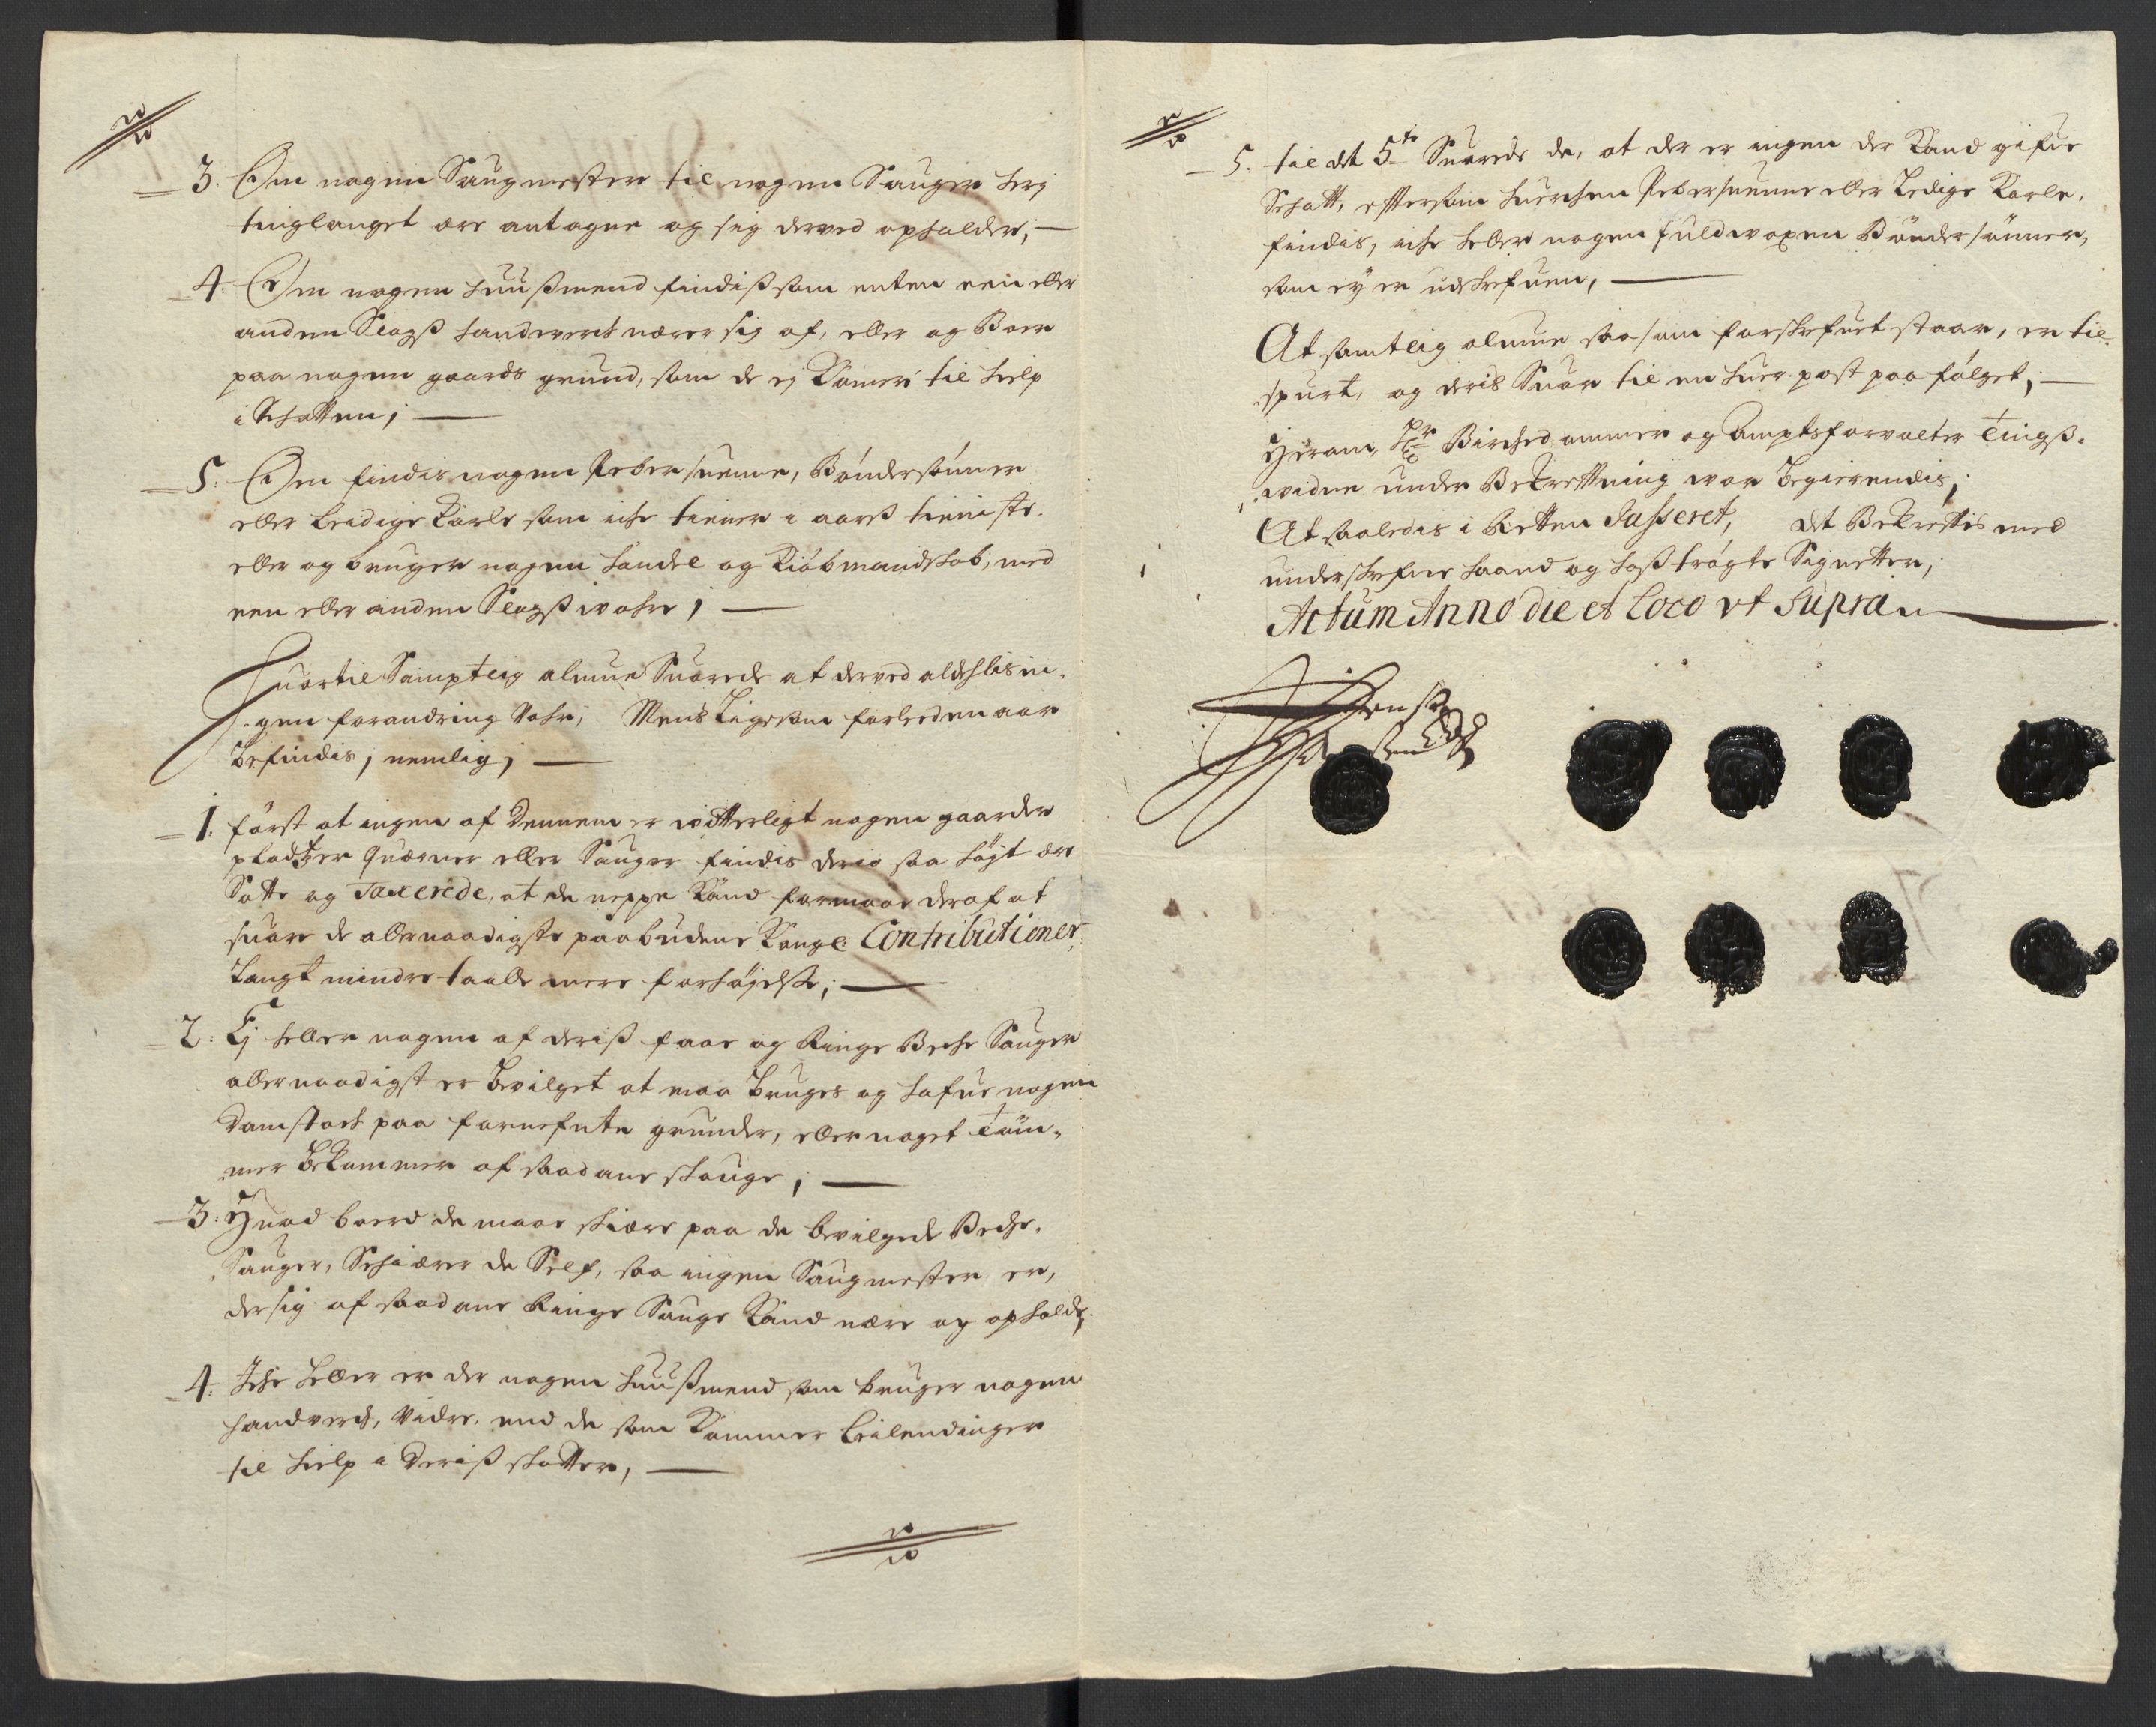 3. Om nogen Saugmester til nogen Sauger herj
tinglauget ere antagne og sig derved opholder; —
4. Om nogen huusmend findis som enten een eller
anden Slags handverck nærer sig af, eller og Boer
paa nogen gaards grund, som de ej Komer til hielp
i Schatten; —
5. Om findis nogen Pebersuenne, Bøndersønner
eller leedige Karle som iche tiener i aars tieniste.
eller og bruger nogen handel og Kiøbmandskab, med
een eller anden Slags wahre; —
Huortil Sampteig almue Suarede at derved aldelis in-
gen forandring vahr; Mens Ligesom forleeden aar
befindis, nemlig; —
1. først at ingen af dennem er witterligt nogen gaarder
pladtzer Quærner eller Sauger findis derio saa høyt ere
Satte og Taxerede, at de neppe Kand formaae deraf at
suare de allernaadigste paabudene Kongl: Contributioner,
Langt mindre taalle mere forhøyelse; —
2. Ej heller nogen af deris faae og Ringe Beche Sauger
allernaadigst er bevilget at maa bruges og hafue nogen
Damstock paa fornefnte grunder, eller noget Tøm-
mer bekommer af saadane skouge; —
3. Huad bord de maae skiære paa de bevilgede Beche-
Sauger, Schiærer de Self, saa ingen Saugmester er,
der sig af saadane Ringe Sauge Kand nære og opholde,
4. Iche heller er der nogen huusmend som bruger nogen
handverch, Videre end de som Kommer Leilendinger
til hielp i deris skatter, —
5. til det 5te Suarede de, at der er ingen der Kand gifue
Schatt, eftersom huerchen Pebersuenne eller Ledige Karle,
findis, iche heller nogen fuldwoxen Bøndersønner,
som ey er udskrefuen, —
At samtlig almue saasom forskrefuet staar, er til-
spurt, og deris Suar til en huer post paa følget; —
Herom, Hr Birchedommer og Amptsforvalter Tings-
widne under Bekreftning war begierendis;
At saaledis i Retten Passeret, det Bekreftis med
underskrefne haand og hostrøgte Signetter,
Actum Anno die et Loco ut Supra